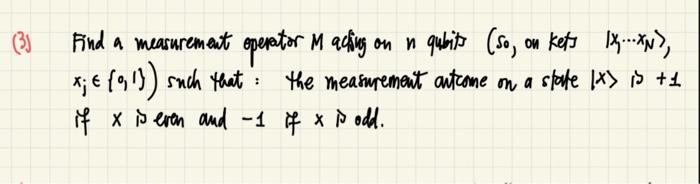 (3) Find a measurement operator M acting on n qubits (so, on kets |x₁...x_N⟩,
x_j ∈ {0,1}) such that : the measurement outcome on a state |x⟩ is +1
if x is even and -1 if x is odd.